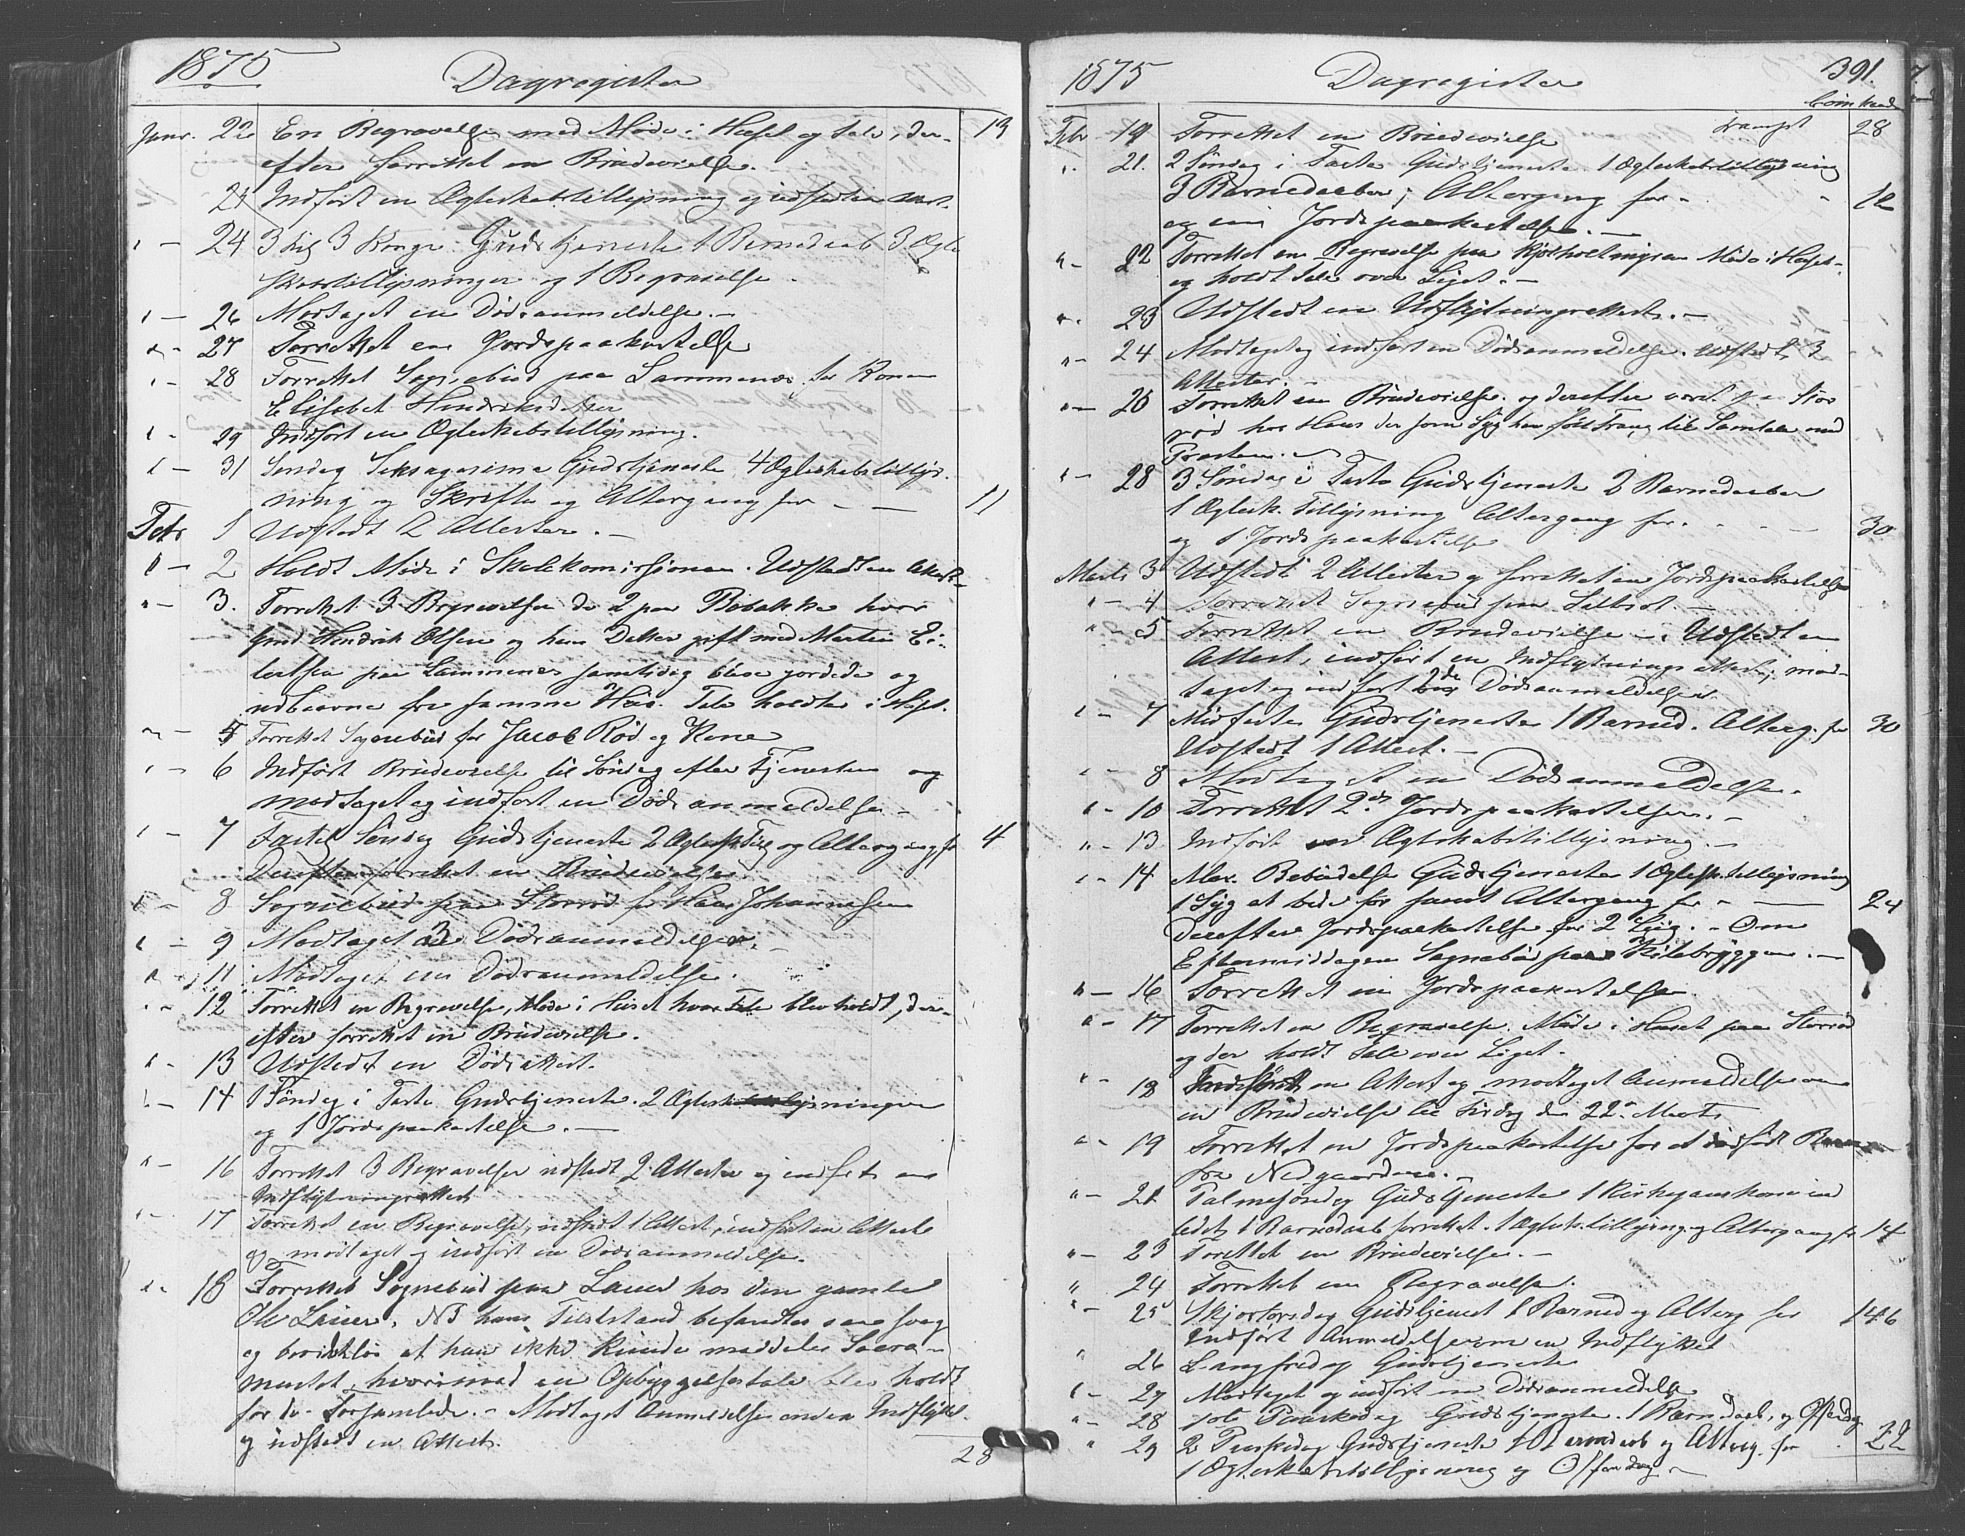 1875 Dagregister
Janr. 22 En Begravelse med Møde i Huset og Tale, der- 13
efter forrettet en Brudevielse.
23 Indført en Ægteskabstillysning og udstedt en Attest.
" - 24 3 Hel. 3 Konge. Gudstjeneste 1 Barnedaab 3 Ægte
skabstillysninger og 1 Begravelse.
" - 26 Modtaget en Dødsanmeldelse. -
" - 27 Forrettet en Jordspaakastelse
" - 28 Forrettet Sognebud paa Lammenes for Konen
Elisabet Hendriksdatter
" - 29 Indført en Ægteskabstillysning.
" - 31 Søndag Seksagesima Gudstjeneste, 4 Ægteskabstillys-
ning og Skrifte og Altergang for - - 11
Febr 1 Udstedt 2 Attester. -
" - 2 Holdt Møde i Skolekomissionen. Udstedt en Attest-
" - 3. Forrettet 3 Begravelser de 2 paa Bobakke hvor
Gmd Hendrik Olsen og hans Datter gift med Martin Ei-
lertsen paa Lammenes samtidig bleve jordede og
udbaarne fra samme Hus. Tale holdtes i Huset.
" - 5 Forrettet Sognebud for Jacob Rød og Kone
" - 6 Indført Brudevielse til Søndag efter Tjenesten og
modtaget og indført en Dødsanmeldelse -
" - 7 Faste Søndag Gudstjeneste 2 Ægtesk Till og Altergang for 4
Derefter forrettet en Brudevielse.
" - 8 Sognebud paa Storrød for Hans Johannesen
" - 9 Modtaget 3 Dødsanmeldelser. -
" - 11 Modtaget en Dødsanmeldelse.
" - 12 Forrettet en Begravelse, Møde i Huset hvor Tale blev holdt, der-
efter forrettet en Brudevielse.
" - 13 Udstedt en Dødsattest.
" - 14 1 Søndag i Faste Gudstjeneste. 2 Ægteskabstillysninger
og 1 Jordspaakastelse. -
" - 16 Forrettet 3 Begravelser udstedt 2 Attester og indført en
Indflytningsattest
" - 17 Forrettet en Begravelse, udstedt 1 Attest, indført en Attest
og modtaget og indført en Dødsanmeldelse.
" - 18 Forrettet Sognebud paa Lauer hos den gamle
Ole Lauer. NB hans Tilstand befandtes saa svag
og bevidstløs at han ikke kunde meddeles Sacra-
mentet, hvorimod en Opbyggelsestale blev holdt
for de Forsamlede. - Modtaget Anmeldelse om en Indflyttet
og udstedt en Attest. 28
1875 Dagregister 391.
Febr 19 Forrettet en Brudevielse Transpt 28
" 21. 2 Søndag i Faste Gudstjeneste 1 Ægteskabstillysning
3 Barnedaaber, Altergang for - - 12
og en Jordspaakastelse. -
" - 22 Forrettet en Begravelse paa Kjølholtmyren Møde i Huset-
og holdt Tale over Liget. -
" . 23 Udstedt en Udflytningsattest. -
" - 24 Modtaget og indført en Dødsanmeldelse. Udstedt 3
Attester. -
" - 26 Forrettet en Brudevielse. og derefter været paa Stor
rød hos Hans der som Syg hans følt Trang til Samtale med
Præsten. -
" - 28 3 Søndag i Faste Gudstjeneste 2 Barnedaaber
1 Ægtesk. Tillysning Altergang for. - - - 30
og 1 Jordspaakastelse
Marts 3 Udstedt 2 Attester og forrettet en Jordspaakastelse
" - 4 Forrettet Sognebud paa
" - 5 Forrettet en Brudevielse -. Udstedt en
Attest, indført en Indflytningsattest, mod-
taget og indført 2de Dødsanmeldelser.
" - 7 Midfaste Gudstjeneste 1 Barned. Alterg. for 30
Udstedt 1 Attest. -
" - 8 Modtaget en Dødsanmeldelse.
" - 10 Forrettet 2de Jordspaakastelser. -
" - 13. Indført en Ægteskabstillysning. -
" - 14 Mar. Bebudelse Gudstjeneste 1 Ægtesk. tillysning
1 Syg at bede for samt Altergang for - - 24
Derefter Jordspaakastelse for 2 Liig. - Om
Eftermiddagen Sognebud paa Kilebryggen. -
" - 16 Forrettet en Jordspaakastelse
" - 17 Forrettet en Begravelse. Møde i Huset paa Storrød
og der holdt Tale over Liget.
" - 18 Indført en Attest og modtaget Anmeldelse om
en Brudevielse til Tirsdag den 22. Marts
" - 19 Forrettet en Jordspaakastelse for et dødfødt Barn
fra Nedgaarden. -
" - 21 Palmesøndag Gudstjeneste 1 Kirkegangskone ind
ledet, 1 Barnedaab forrettet. 1 Ægtesk.tillysng og Altergang for 14
" - 23 Forrettet en Brudevielse. -
" 24 Forrettet en Begravelse.
" - 25 Skjærtorsdag Gudstjenest 1 Barned og Alterg for 146
Indført Anmeldelse om en Indflyttet
" 26 Langfredag Gudstjeneste
" - 27 Modtaget og indført en Dødsanmeldelse
" - 28 1ste Paaskedag Gudstjeneste. 1 Barnedaab, og Offerdag
" 29 2 Paaskedag Gudstjeneste 1 Barnedaab og Alterg. for . 22
1 Ægteskabstillysning og Offerdag -